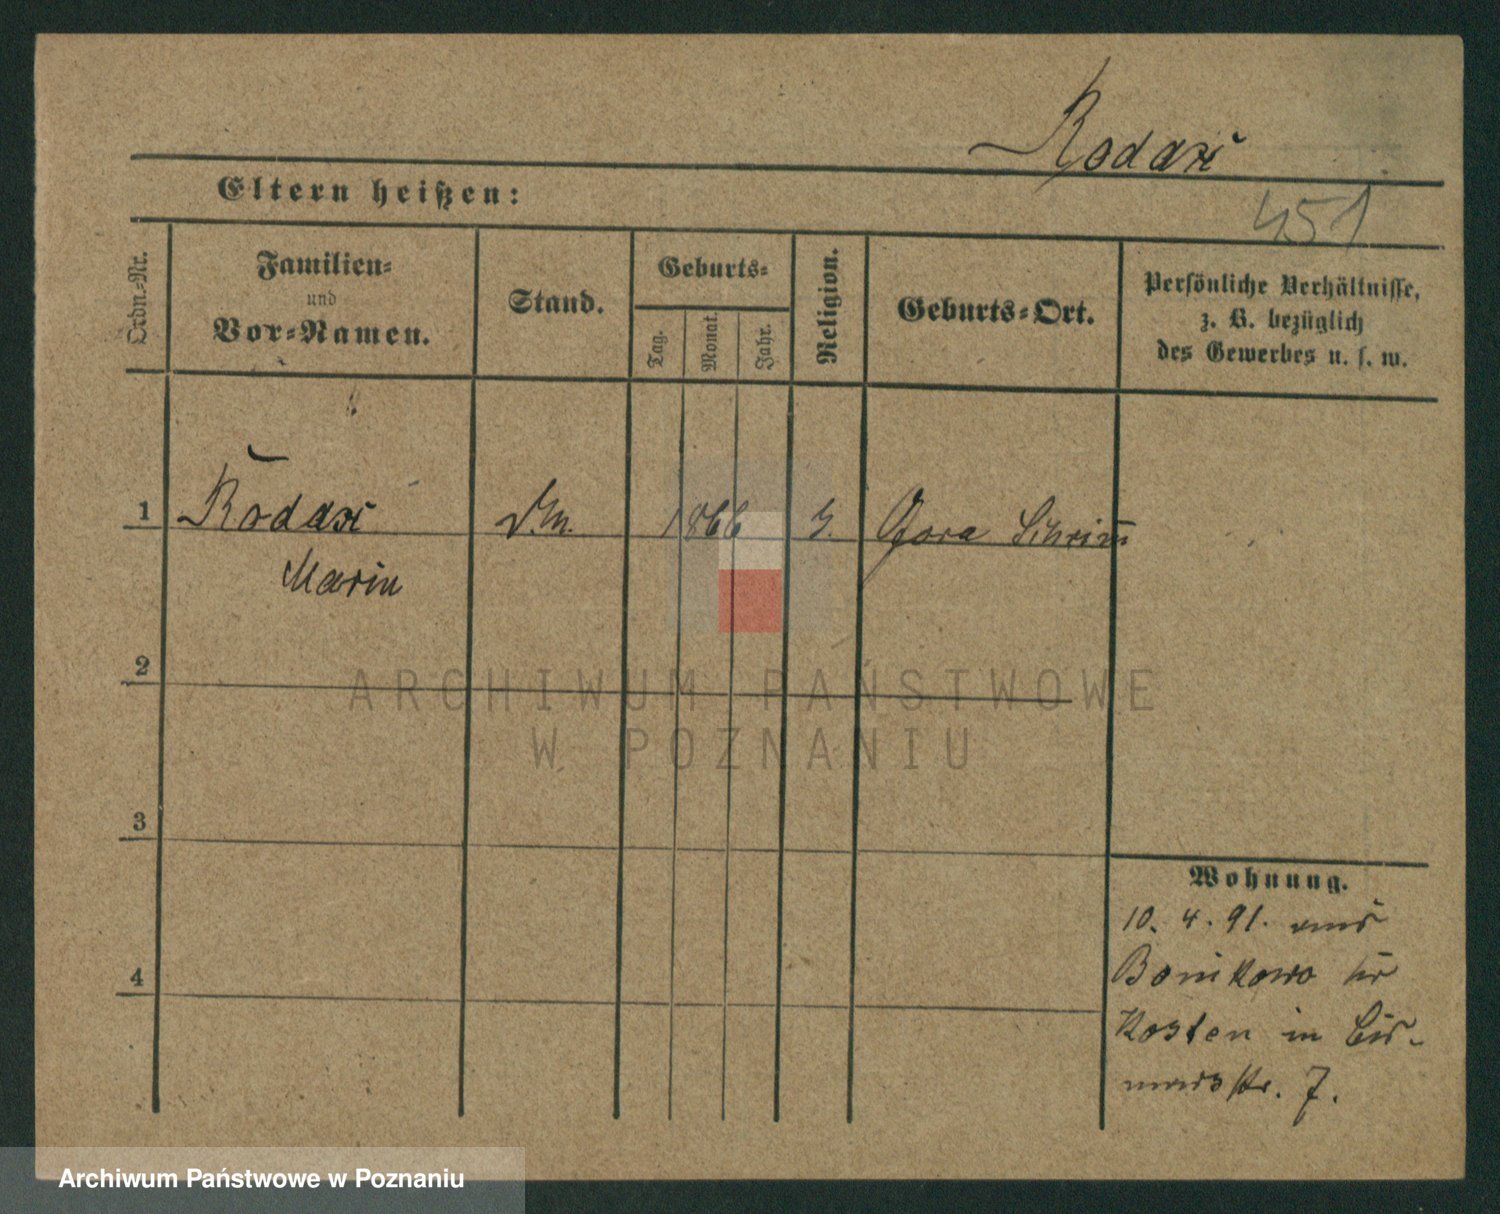 Rodaxi
Eltern heißen:
451
Ordn.-Nr.
Familien-
und
Vor-Namen.
Stand.
Geburts-
Tag.
Monat.
Jahr.
Religion.
Geburts-Ort.
Persönliche Verhältnisse,
z. B. bezüglich
des Gewerbes u. s. w.
1 Rodaxi 1866 Gora Schrim̅
Marin
2
ARCHIWUM PAŃSTWOWE
W POZNANIU
3
Wohnung.
10. 4. 91. aus
Bonikowo kr
4
Kosten in Bis-
markstr. 7.
Archiwum Państwowe w Poznaniu